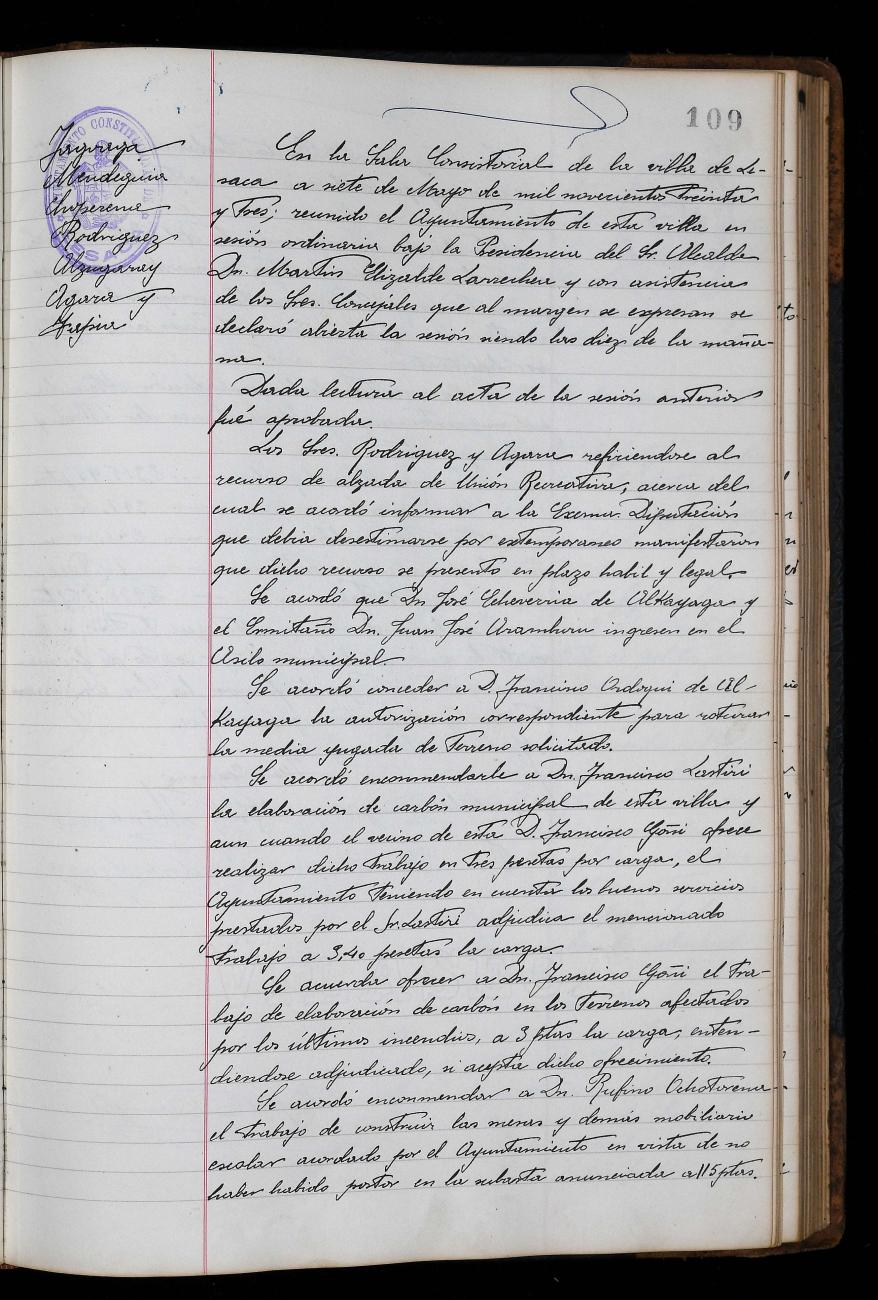 109
Mendeguia
Choperena
Rodriguez
Alzugaray
Agara y
Tapia
En la Sala Consistorial de la villa de Le-
saca a siete de Mayo de mil novecientos treinta
y tres; reunido el Ayuntamiento de esta villa en
sesión ordinaria bajo la Presidencia del Sr. Alcalde
Dn. Martin Elizalde Larrechea y con asistencia
de los Sres. Concejales que al margen se expresan se
declaró abierta la sesión siendo las diez de la maña-
na.
Dada lectura al acta de la sesión anterior
fué aprobada.
Los Sres. Rodriguez y Agara refiriendose al
recurso de alzada de Unión Recreativa, acerca del
cual se acordó informar a la Excma. Diputación
que debia desestimarse por extemporaneo manifestaron
que dicho recurso se presento en plazo habil y legal.
Se acordó que Dn José Echeverria de Alkayaga y
el Ermitaño Dn. Juan José Aramburu ingresen en el
Asilo municipal
Se acordó conceder a D. Francisco Ordoqui de Al-
kayaga la autorización correspondiente para roturar
la media yugada de terreno solicitado.
Se acordó enconmendarle a Dn. Francisco Lastiri
la elaboración de carbón municipal de esta villa y
aun cuando el vecino de esta D. Francisco Goñi ofrece
realizar dicho trabajo en tres pesetas por carga, el
Ayuntamiento teniendo en cuenta los buenos servicios
prestados por el Sr. Lastiri adjudica el mencionado
trabajo a 3,40 pesetas la carga.
Se acuerda ofrecer a Dn. Francisco Goñi el tra-
bajo de elaboración de carbón en los terrenos afectados
por los últimos incendios, a 3 ptas la carga, enten-
diendose adjudicado, si acepta dicho ofrecimiento.
Se acordó enconmendar a Dn. Rufino Ochotorena
el trabajo de construir las mesas y demás mobiliario
escolar acordado por el Ayuntamiento en vista de no
haber habido postor en la subasta anunciada a 115 ptas.